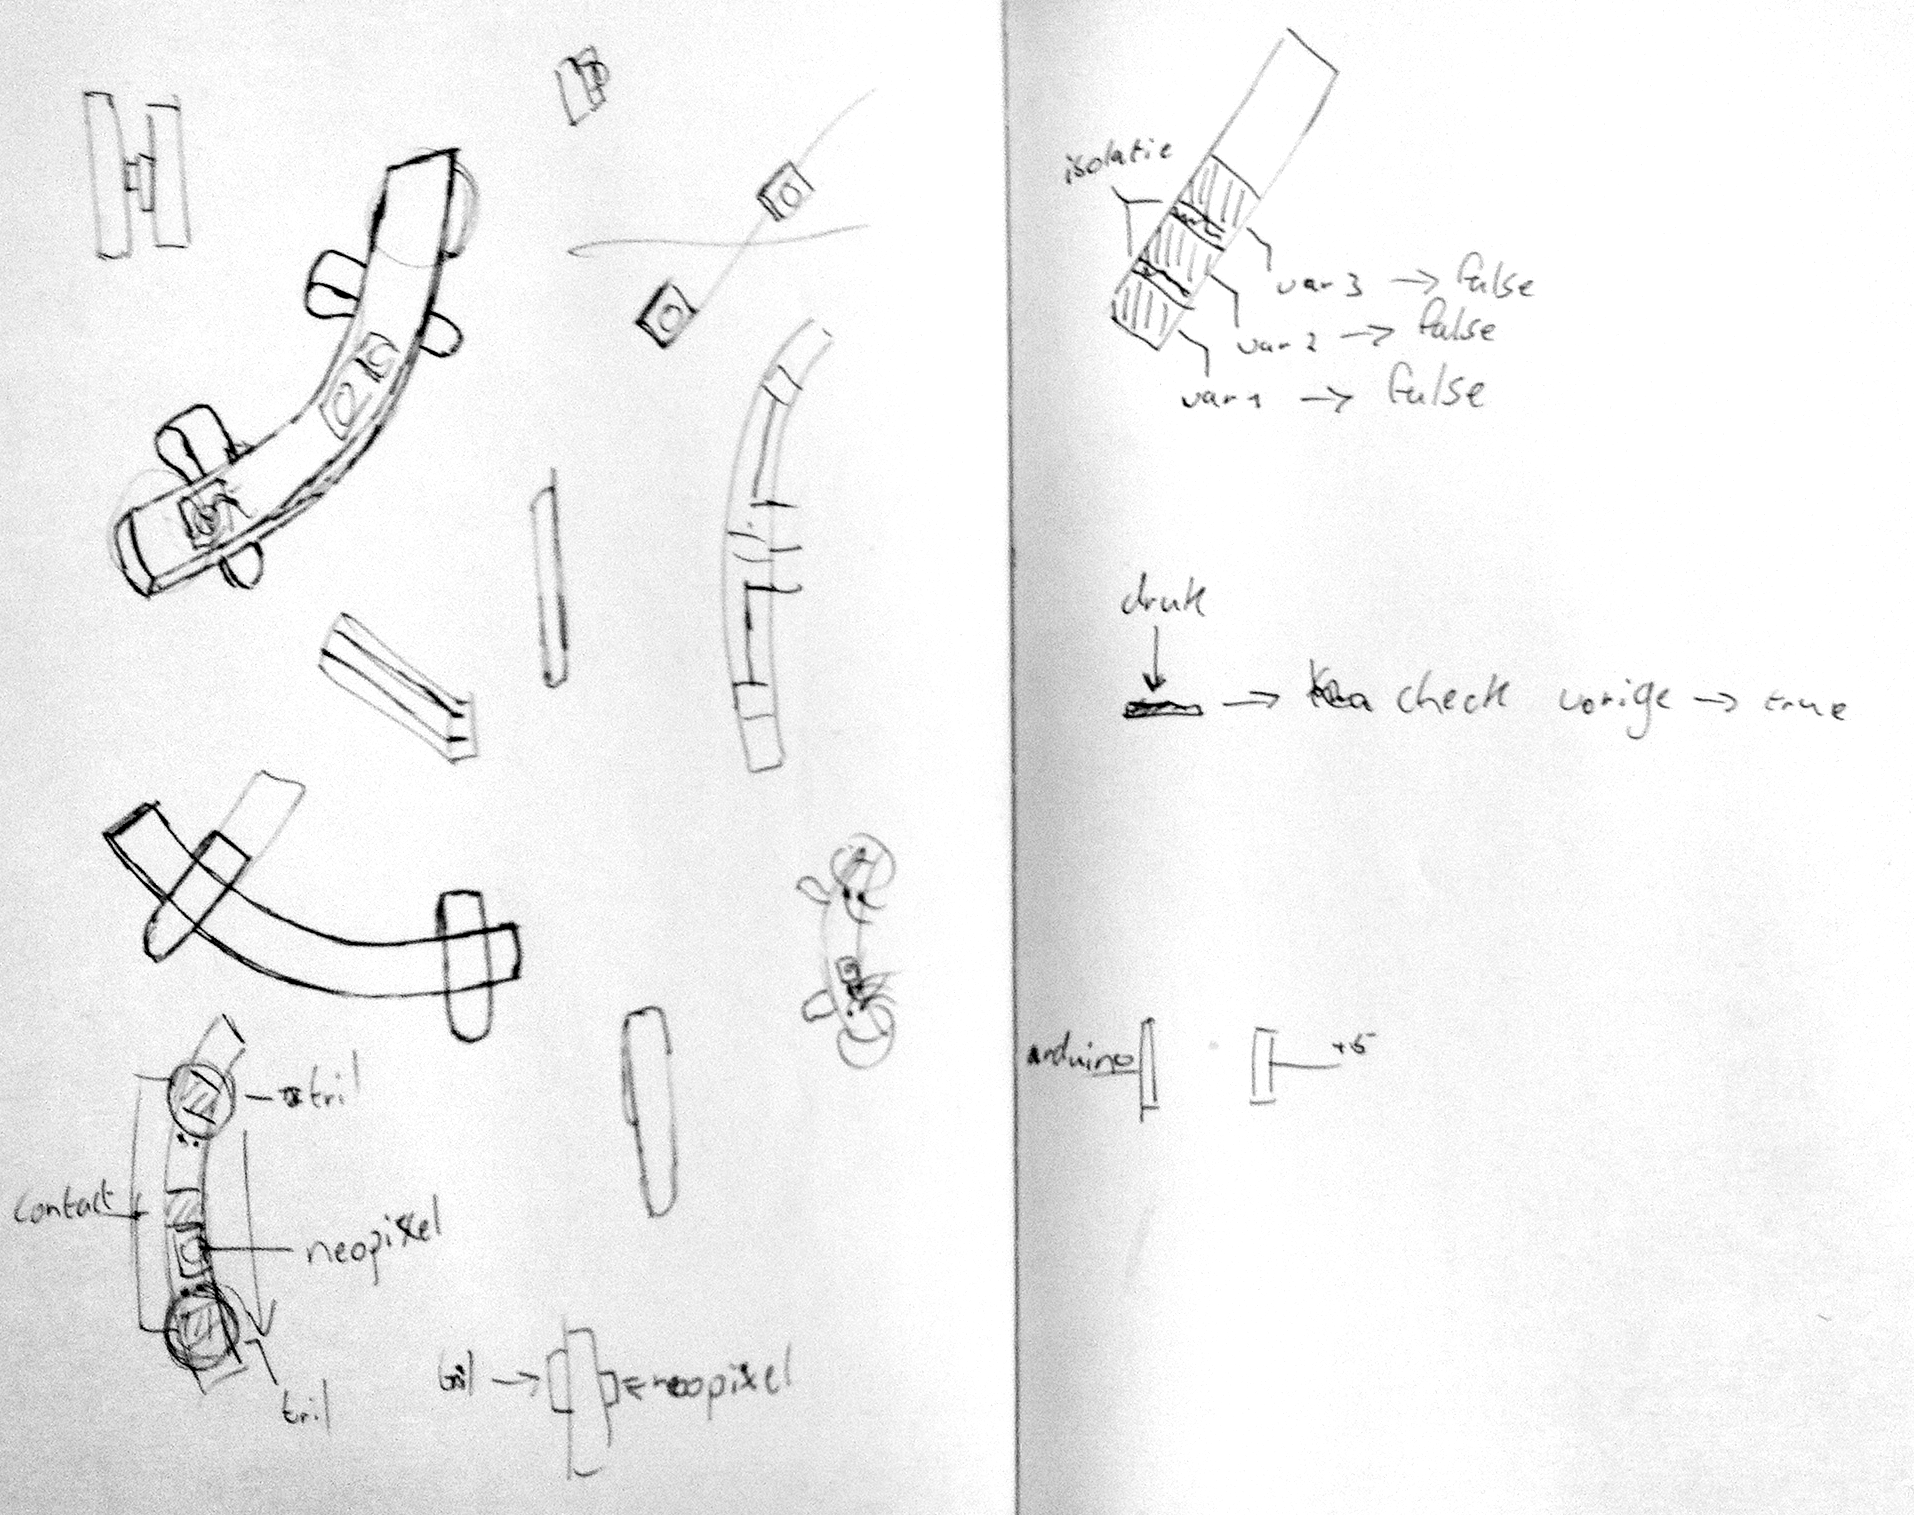 tril
contact
neopixel
tril
tril
neopixel
isolatie
var 3 → false
var 2 → false
var 1 → false
druk
→ check vorige → true
arduino
+5